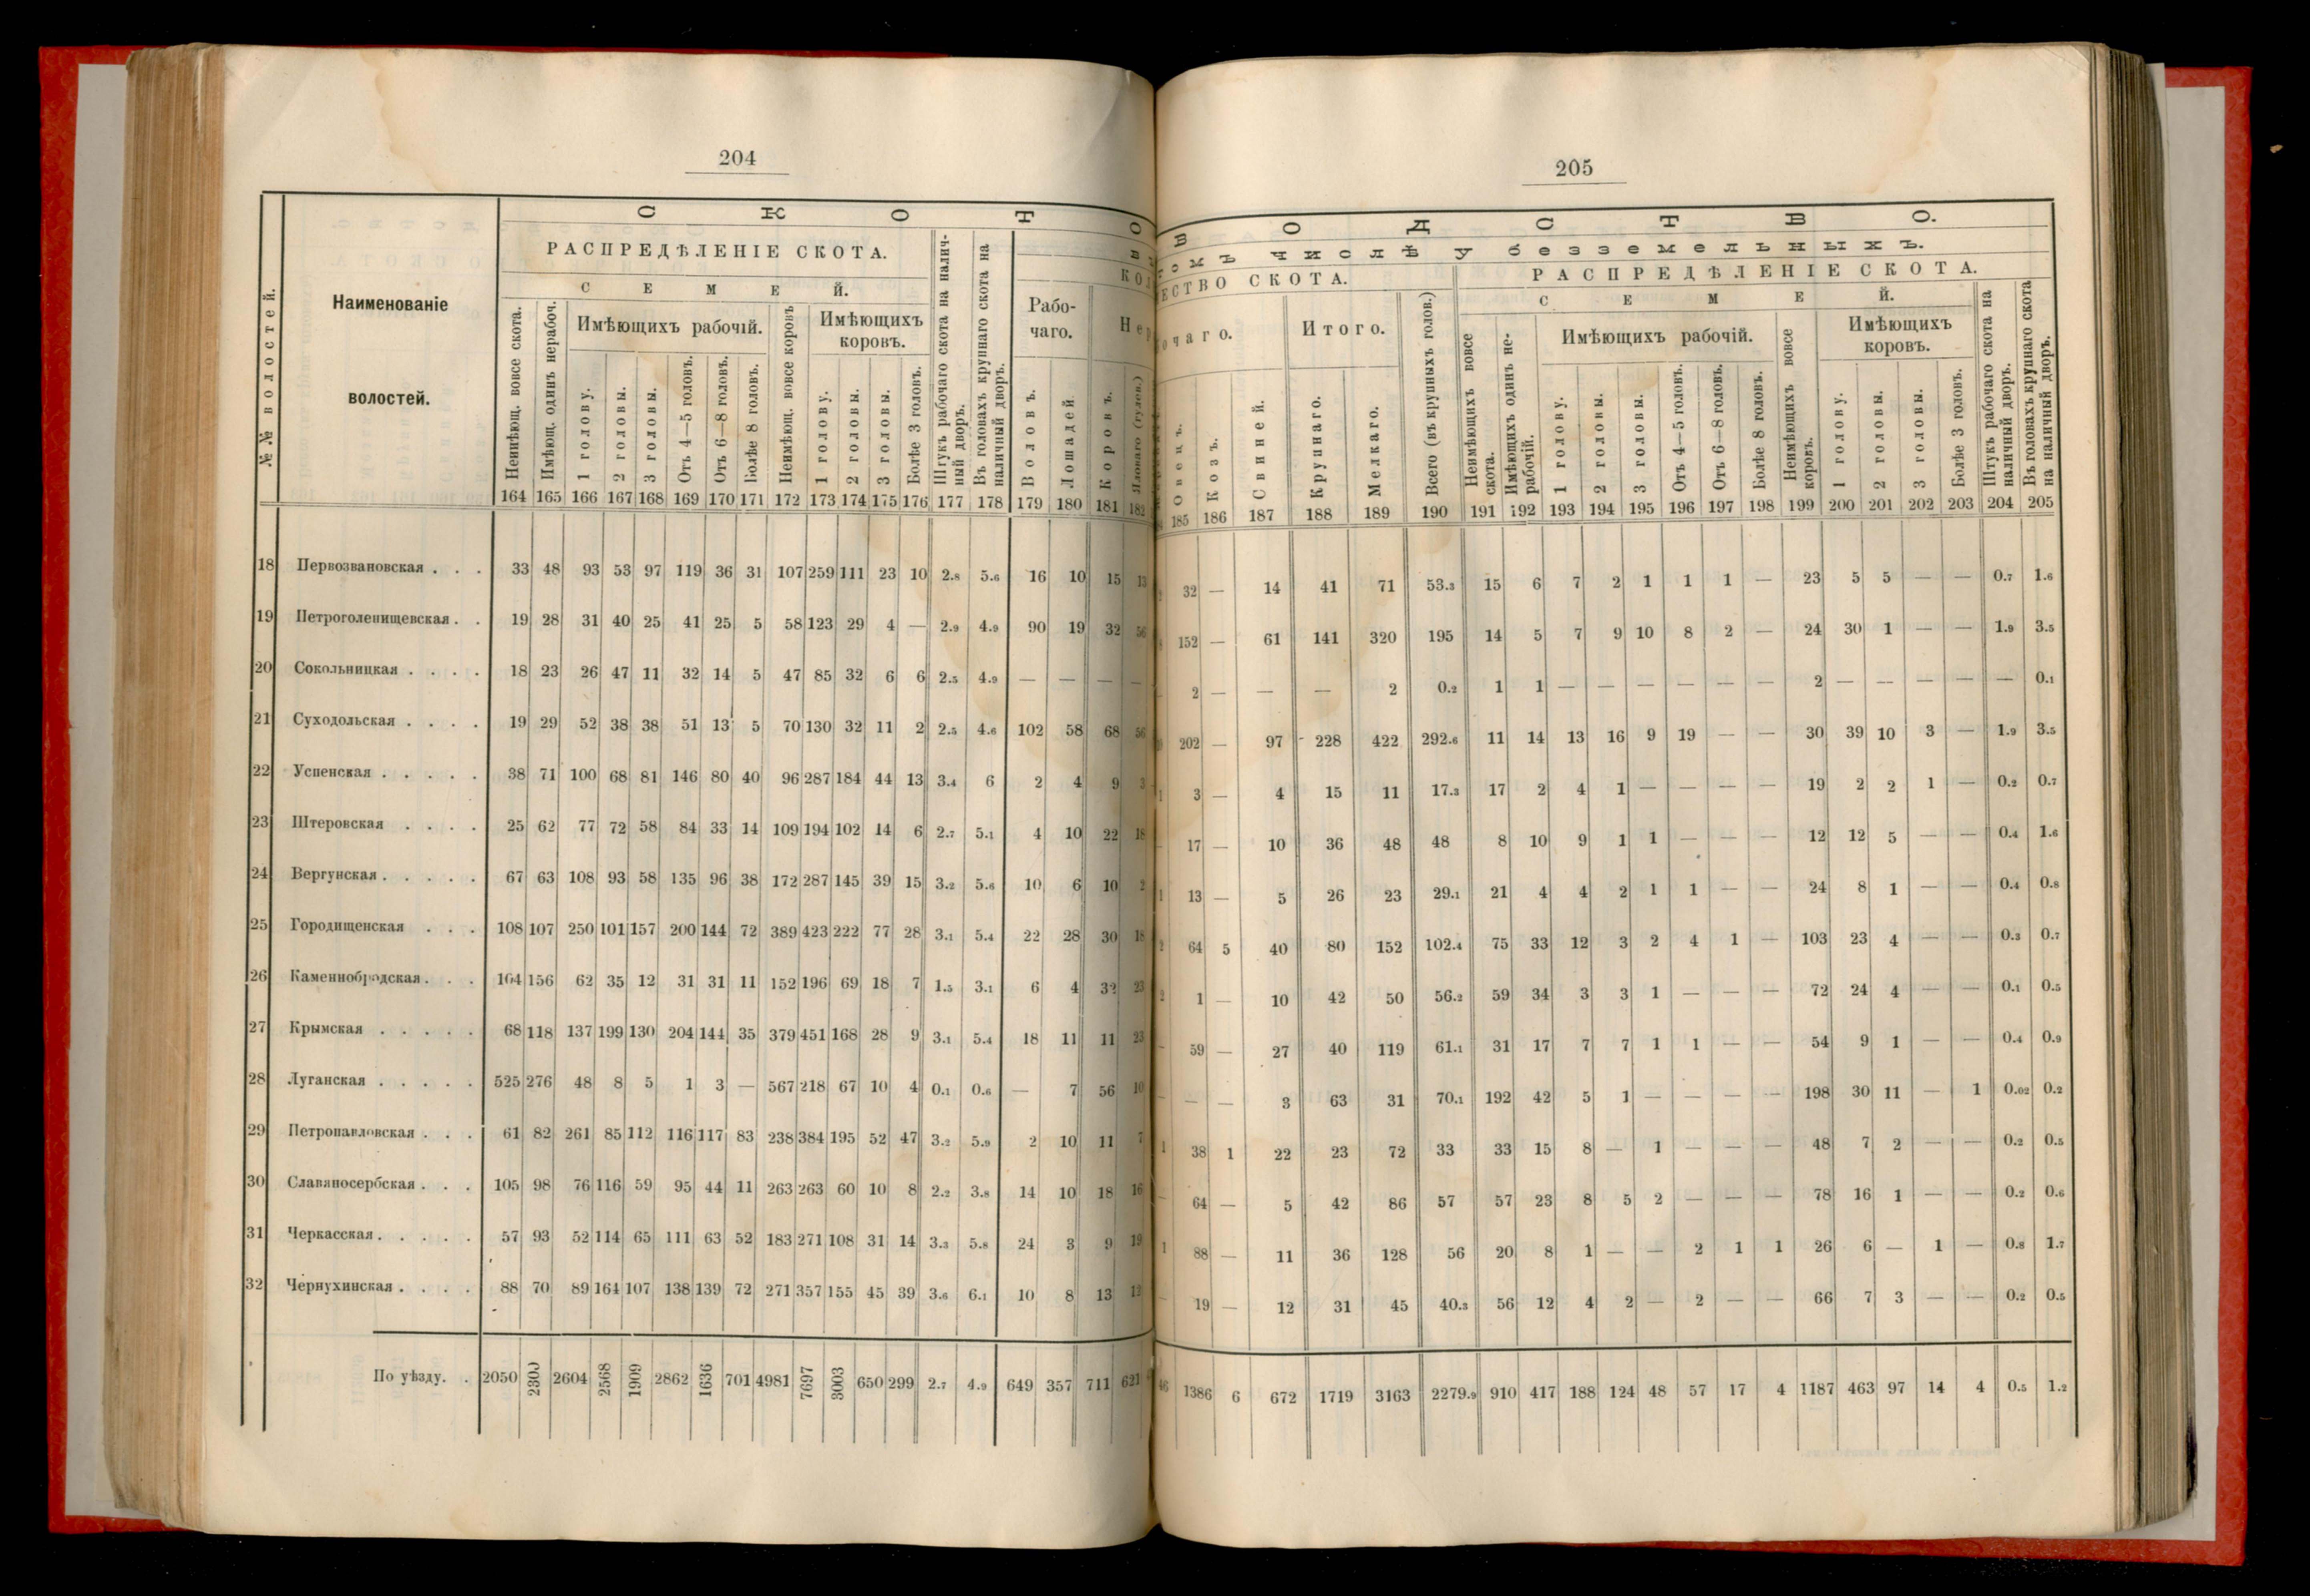 204
С К О Т О
№№ волостей.
Наименованіе
волостей.
РАСПРЕДѢЛЕНІЕ СКОТА.
СЕМЕЙ.
Имѣющихъ рабочій.
Имѣющихъ
коровъ.
Неимѣющ. вовсе скота.
Имѣющ. одинъ нерабоч.
1 голову.
2 головы.
3 головы.
Отъ 4—5 головъ.
Отъ 6—8 головъ.
Болѣе 8 головъ.
Неимѣющ. вовсе коровъ
1 голову.
2 головы.
3 головы.
Болѣе 3 головъ.
Штукъ рабочаго скота на налич-
ный дворъ.
Въ головахъ крупнаго скота на
наличный дворъ.
Рабо-
чаго.
Воловъ.
Лошадей.
Коровъ.
164 165 166 167 168 169 170 171 172 173 174 175 176 177 178 179 180 181 182
18 Первозвановская . . . 33 48 93 53 97 119 36 31 107 259 111 23 10 2.8 5.6 16 10 15 13
19 Петроголенищевская . . 19 28 31 40 25 41 25 5 58 123 29 4 — 2.9 4.9 90 19 32 56
20 Сокольницкая . . . . 18 23 26 47 11 32 14 5 47 85 32 6 6 2.5 4.9 — — — —
21 Суходольская . . . . 19 29 52 38 38 51 13 5 70 130 32 11 2 2.5 4.6 102 58 68 56
22 Успенская . . . . . 38 71 100 68 81 146 80 40 96 287 184 44 13 3.4 6 2 4 9 3
23 Штеровская . . . . 25 62 77 72 58 84 33 14 109 194 102 14 6 2.7 5.1 4 10 22 18
24 Вергунская . . . . . 67 63 108 93 58 135 96 38 172 287 145 39 15 3.2 5.6 10 6 10 2
25 Городищенская . . . 108 107 250 101 157 200 144 72 389 423 222 77 28 3.1 5.4 22 28 30 18
26 Каменнобродская . . . 164 156 62 35 12 31 31 11 152 196 69 18 7 1.5 3.1 6 4 32 23
27 Крымская . . . . . 68 118 137 199 130 204 144 35 379 451 168 28 9 3.1 5.4 18 11 11 23
28 Луганская . . . . . 525 276 48 8 5 1 3 — 567 218 67 10 4 0.1 0.6 — 7 56 10
29 Петропавловская . . . 61 82 261 85 112 116 117 83 238 384 195 52 47 3.2 5.9 2 10 11 7
30 Славяносербская . . . 105 98 76 116 59 95 44 11 263 263 60 10 8 2.2 3.8 14 10 18 16
31 Черкасская . . . . . 57 93 52 114 65 111 63 52 183 271 108 31 14 3.3 5.8 24 3 9 19
32 Чернухинская . . . . 88 70 89 164 107 138 139 72 271 357 155 45 39 3.6 6.1 10 8 13 12
По уѣзду. . 2050 2300 2604 2568 1909 2862 1636 701 4981 7697 3003 650 299 2.7 4.9 649 357 711 621
205
В О Д С Т В О.
томъ числѣ у безземельныхъ.
ЕСТВО СКОТА.
РАСПРЕДѢЛЕНІЕ СКОТА.
СЕМЕЙ.
очаго.
Итого.
Имѣющихъ рабочій.
Имѣющихъ
коровъ.
Овецъ.
Козъ.
Свиней.
Крупнаго.
Мелкаго.
Всего (въ крупныхъ голов.)
Неимѣющихъ вовсе
скота.
Имѣющихъ одинъ не-
рабочій.
1 голову.
2 головы.
3 головы.
Отъ 4—5 головъ.
Отъ 6—8 головъ.
Болѣе 8 головъ.
Неимѣющихъ вовсе
коровъ.
1 голову.
2 головы.
3 головы.
Болѣе 3 головъ.
Штукъ рабочаго скота на
наличный дворъ.
Въ головахъ крупнаго скота
на наличный дворъ.
185 186 187 188 189 190 191 192 193 194 195 196 197 198 199 200 201 202 203 204 205
32 — 14 41 71 53.3 15 6 7 2 1 1 1 — 23 5 5 — — 0.7 1.6
152 — 61 141 320 195 14 5 7 9 10 8 2 — 24 30 1 — — 1.9 3.5
2 — — — 2 0.2 1 1 — — — — — — 2 — — — — — 0.1
202 — 97 228 422 292.6 11 14 13 16 9 19 — — 30 39 10 3 — 1.9 3.5
3 — 4 15 11 17.3 17 2 4 1 — — — — 19 2 2 1 — 0.2 0.7
17 — 10 36 48 48 8 10 9 1 1 — — — 12 12 5 — — 0.4 1.6
13 — 5 26 23 29.1 21 4 4 2 1 1 — — 24 8 1 — — 0.4 0.8
64 5 40 80 152 102.4 75 33 12 3 2 4 1 — 103 23 4 — — 0.3 0.7
1 — 10 42 50 56.2 59 34 3 3 1 — — — 72 24 4 — — 0.1 0.5
59 — 27 40 119 61.1 31 17 7 7 1 1 — — 54 9 1 — — 0.4 0.9
— — 3 63 31 70.1 192 42 5 1 — — — — 198 30 11 — 1 0.02 0.2
38 1 22 23 72 33 33 15 8 — 1 — — — 48 7 2 — — 0.2 0.5
64 — 5 42 86 57 57 23 8 5 2 — — — 78 16 1 — — 0.2 0.6
88 — 11 36 128 56 20 8 1 — — 2 1 1 26 6 — 1 — 0.8 1.7
19 — 12 31 45 40.3 56 12 4 2 — 2 — — 66 7 3 — — 0.2 0.5
1386 6 672 1719 3163 2279.9 910 417 188 124 48 57 17 4 1187 463 97 14 4 0.5 1.2